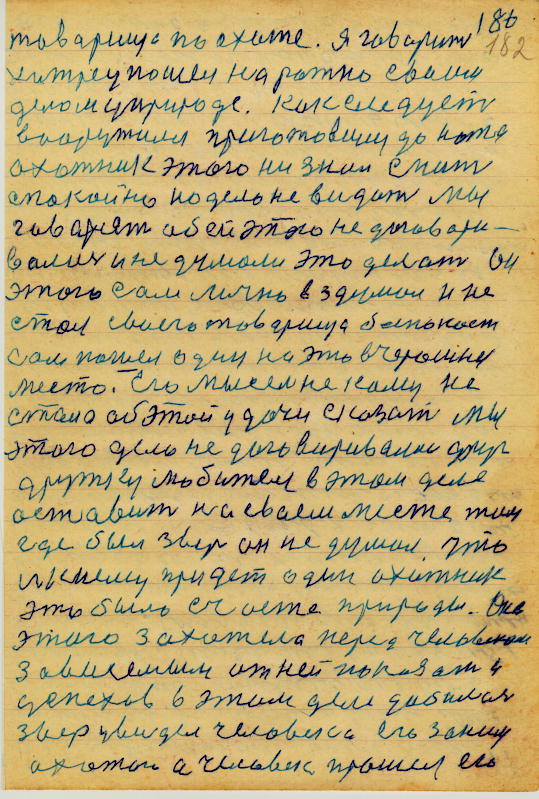 186
182
товарища по охоте. Я говорит
хитрец пошел на ратно своим
делом у природе. Как следует
вооружился приготовилися до ножа
охотник этого ни знал спит
спокойно но дело не видат мы
говарят об ей этого не договари-
валися и не думали это делат он
этого сам лично вздумал и не
стал своего товарища беспокоет
сам пошел один на это вчерашне
место. Его мысел не кому не
стала об этой удачи сказат мы
этого дело не договаривалис друг
дружку любител в этом деле
оставит на сваем месте там
где был звер он не думал, что
к нему придет один охотник
это было счастя природы. Она
этого захотела перед человеком
зависемым от ней показат и
успехов в этом деле добился
звер увидел человека его заним
охотой а человек прошел его